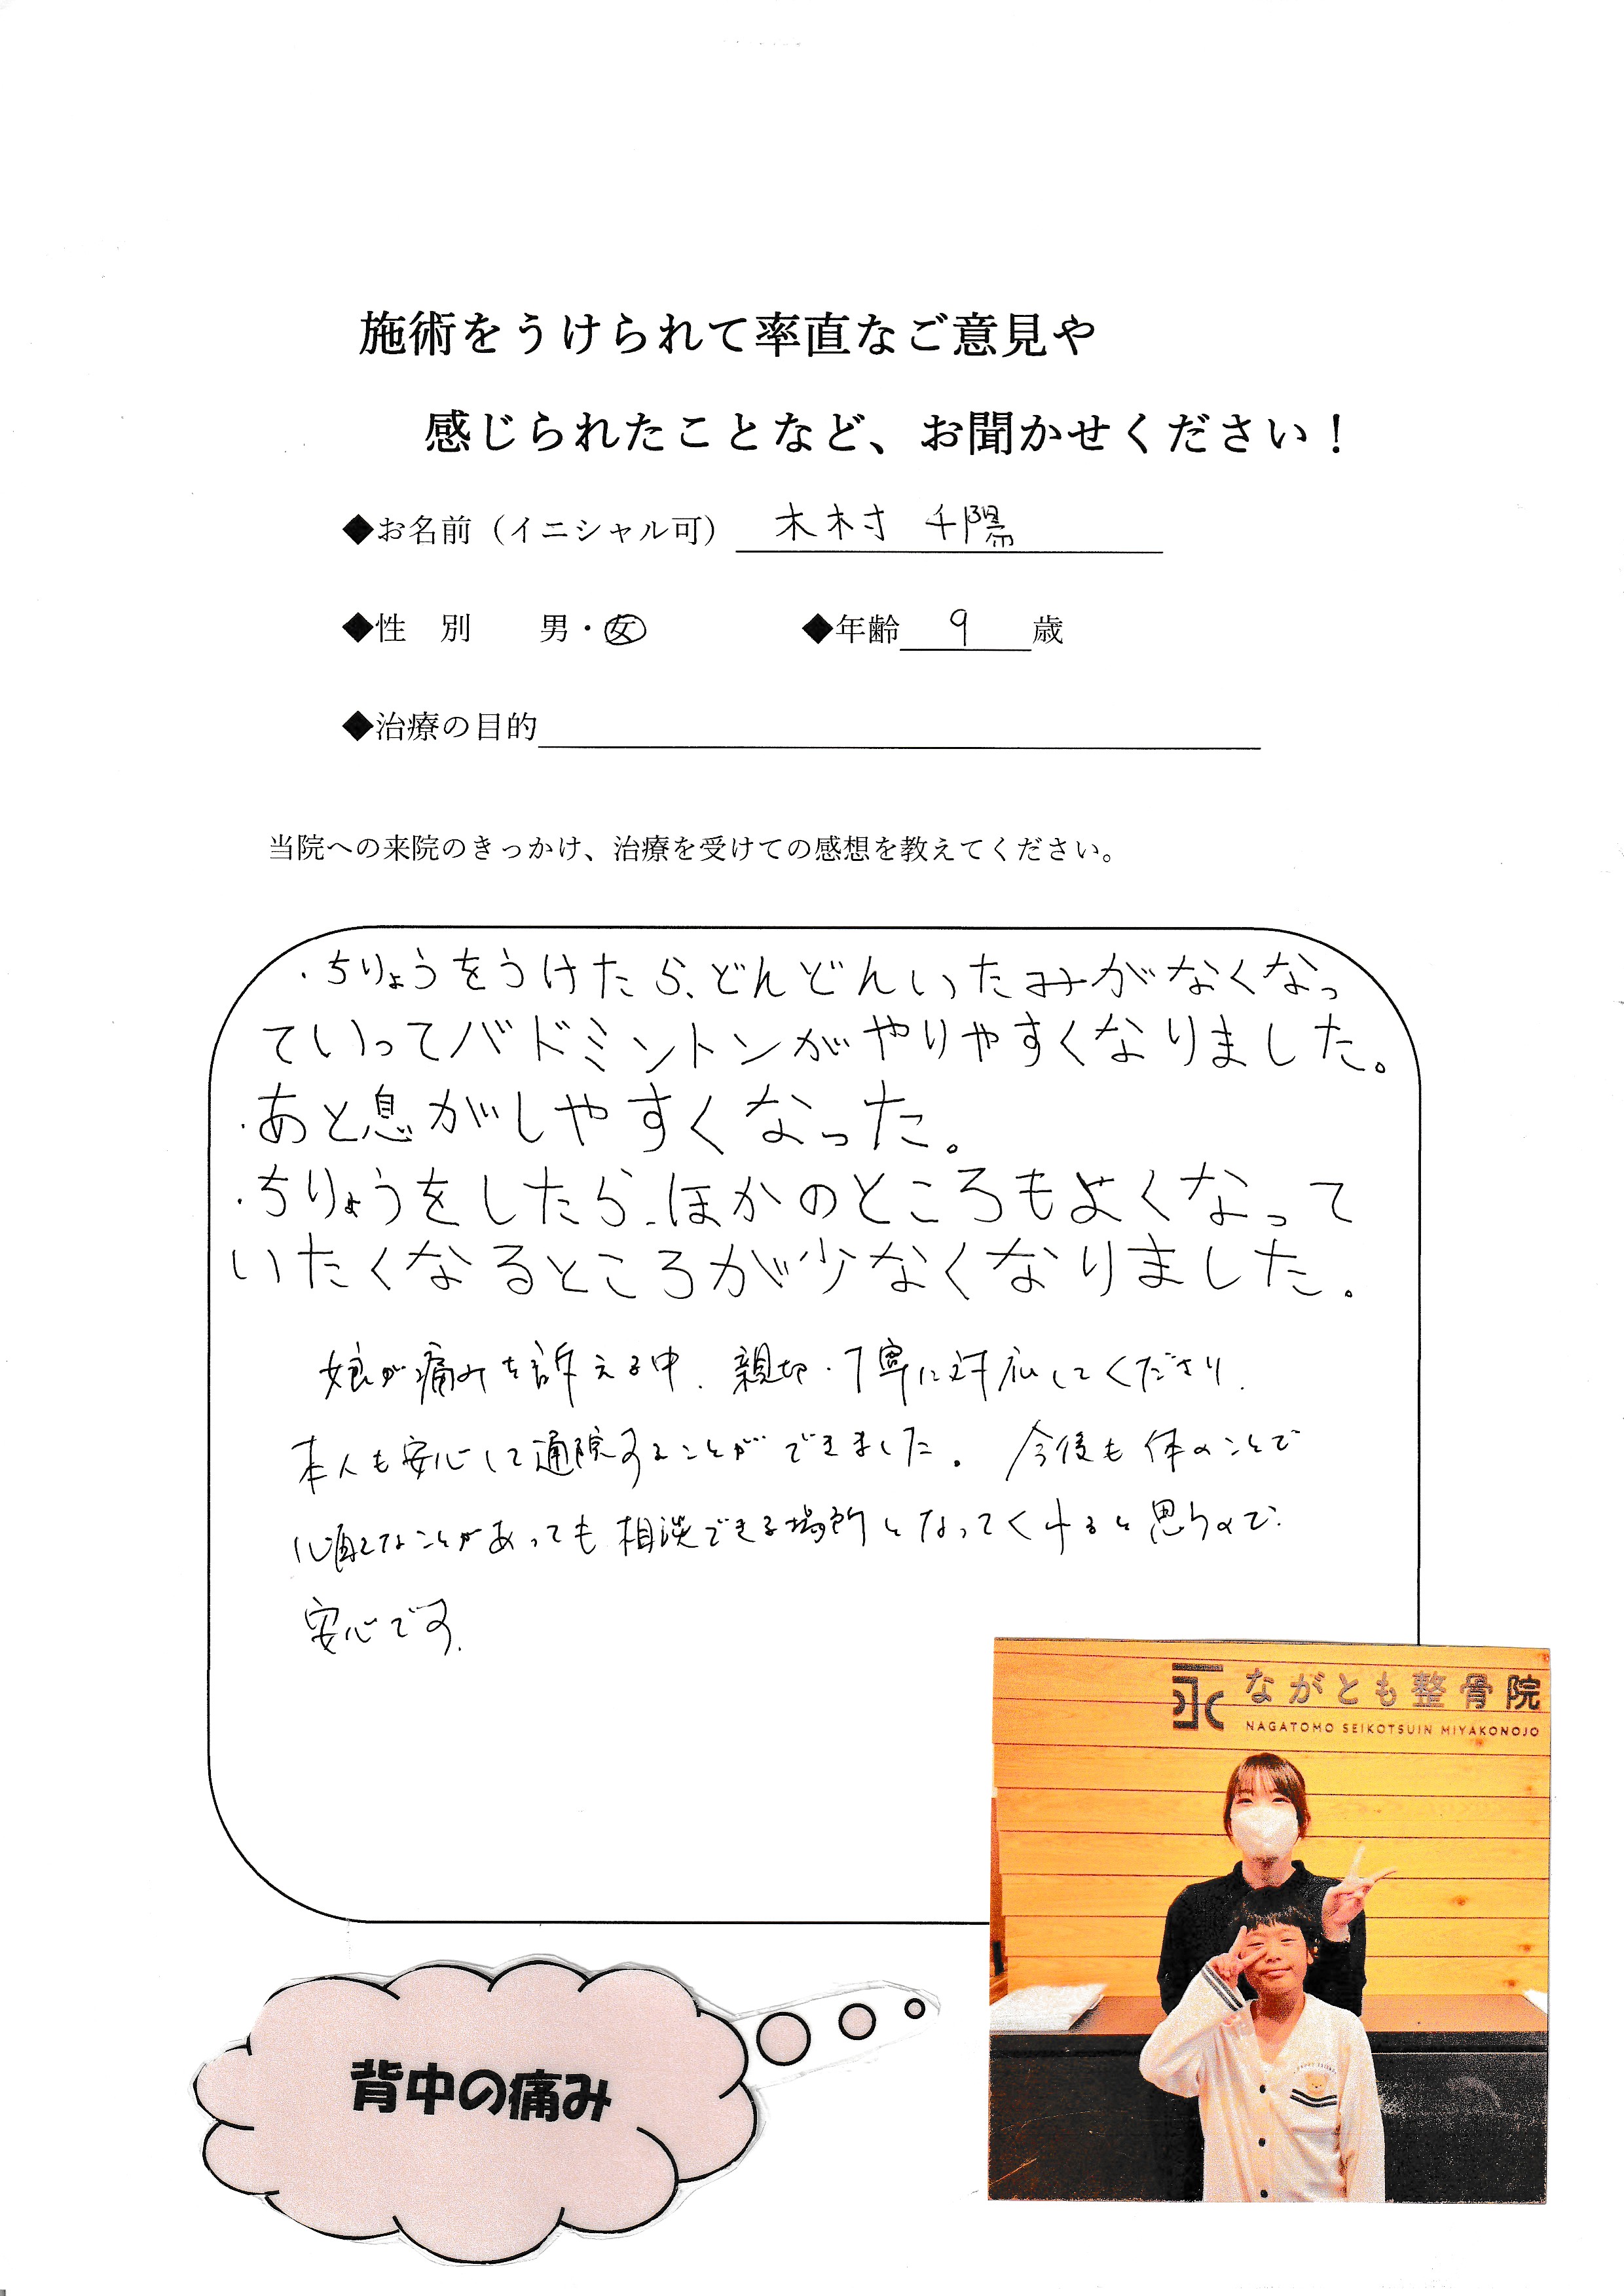 施術をうけられて率直なご意見や
感じられたことなど、お聞かせください！
◆お名前（イニシャル可） 木村 千陽
◆性 別 男・女 ◆年齢 9 歳
◆治療の目的
当院への来院のきっかけ、治療を受けての感想を教えてください。
・ちりょうをうけたら、どんどんいたみがなくなっ
ていってバドミントンがやりやすくなりました。
・あと息がしやすくなった。
・ちりょうをしたら、ほかのところもよくなって
いたくなるところが少なくなりました。
娘が痛みを訴える中、親切・丁寧に対応してくださり、
本人も安心して通院することができました。今後も体のことで
心配なことがあっても相談できる場所となってくれると思うので、
安心です。
永 ながとも整骨院
NAGATOMO SEIKOTSUIN MIYAKONOJO
背中の痛み